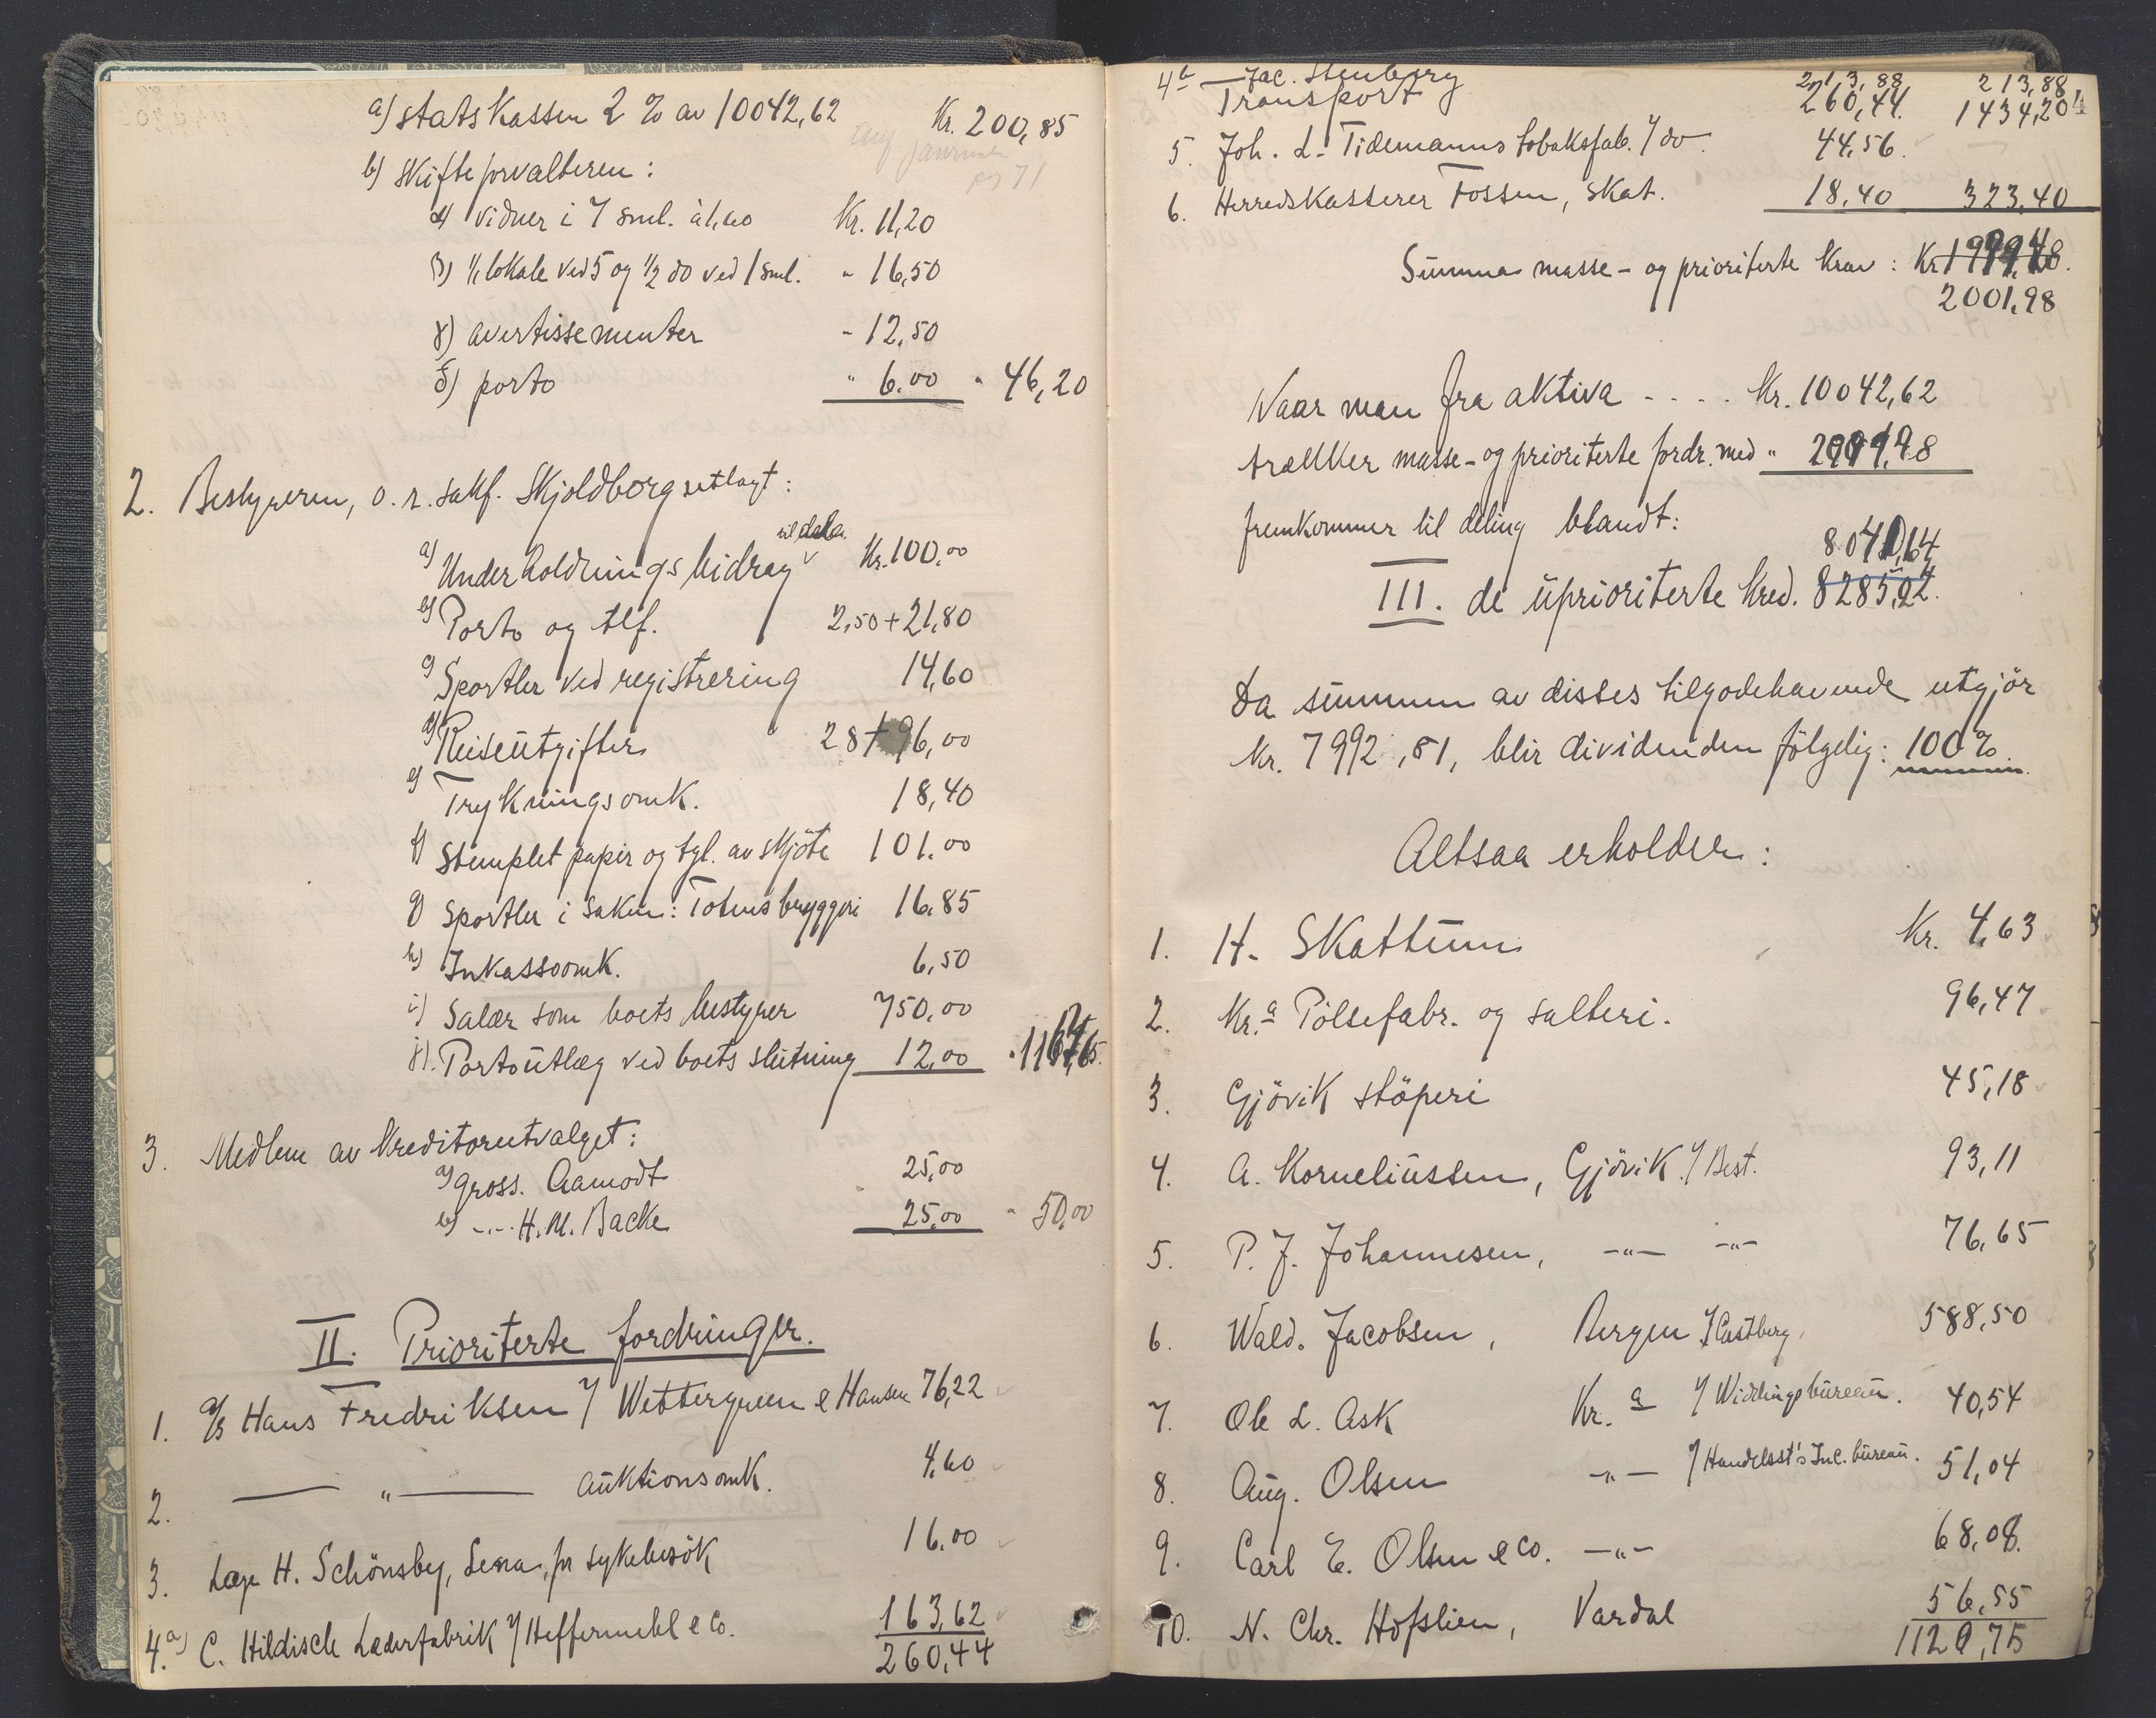 a) statskassen 2 % av 10042,62 Kr. 200,85
b) skifteforvalteren:
α) vidner i 7 sml. à 1,60 Kr. 11,20
β) 1/1 lokale ved 5 og 1/2 do ved 1 sml. " 16,50
γ) avertissementer " 12,50
δ) porto " 6.00 " 46,20
2. Bestyreren, o.r. sakf. Skjoldborg utlagt:
a) Underholdningsbidrag Kr. 100.00
b) Porto og tlf. 2,50 + 21,80
c) Sportler ved registrering 14,60
d) Reiseutgifter 28 + 96,00
e) Trykningsomk. 18,40
f) Stemplet papir og tgl. av skjöte 101.00
g) Sportler i saken: Totens bryggeri 16.85
h) Inkassoomk. 6,50
i) Salær som boets bestyrer 750,00
j). Portoutlæg ved boets slutning 12,00 " 1167,65
3. Medlem av Kreditorutvalget:
a) Gross. Aamodt 25,00
b) -"- H. M. Backe 25,00 " 50,00
II. Prioriterte fordringer.
1. A/S Hans Fredriksen v/ Wettergreen & Hansen 76,22
2. — " — auktionsomk. 4,60
3. Læge H. Schönsby, Lena, for sykebesök 16.00
4.a) C. Hildisch Læderfabrik v/ Heffermehl & Co. 163,62
260,44
4b — Jac. Stenberg 213,88 213,88
Transport 260,44. 1434,204
5. Joh. L. Tidemanns tobaksfab. v/ do. 44,56.
6. Herredskasserer Fossen, skat. 18,40 323,40
Summa masse- og prioriterte krav: Kr.
2001,98
Naar man fra aktiva - - - - Kr. 10042,62
trækker masse- og prioriterte fordr. med "
fremkommer til deling blandt:
8040,64
III. de uprioriterte Kred. 8285,24.
Da summen av disses tilgodehavende utgjör
Kr. 7992,81, blir dividenden fölgelig: 100%.
Altsaa erholder:
1. H. Skattum Kr. 4,63
2. Kr.a Pölsefabr. og salteri. 96,47
3. Gjövik Stöperi 45,18
4. A. Korneliussen, Gjövik v/ Best. 93,11
5. P. J. Johannesen, -"- -"- 76,65
6. Wald. Jacobsen, Bergen v/ Castberg 588,50
7. Ole L. Ask Kr.a v/ Widdingsbureau. 40,54
8. Aug. Olsen -"- v/ Handelsst's Inc. bureau. 51,04
9. Carl E. Olsen & Co. -"- 68,08.
10. N. Chr. Hofslien, Vardal 56,55
1120,75